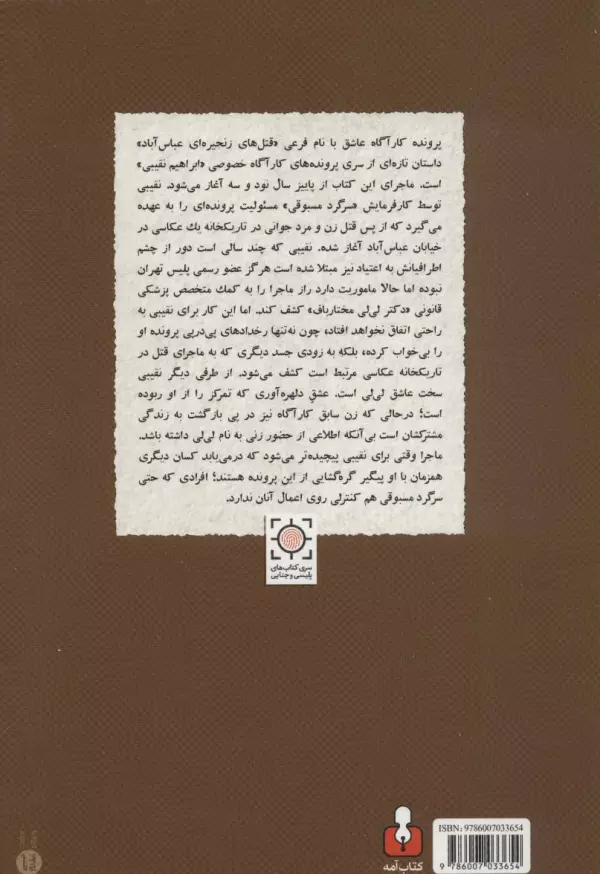 پرونده کارآگاه عاشق با نام فرعی «قتل‌های زنجیره‌ای عباس‌آباد»
داستان تازه‌ای از سری پرونده‌های کارآگاه خصوصی «ابراهیم نقیبی»
است. ماجرای این کتاب از پاییز سال نود و سه آغاز می‌شود. نقیبی
توسط کارفرمایش «سرگرد مسبوقی» مسئولیت پرونده‌ای را به عهده
می‌گیرد که از پس قتل زن و مرد جوانی در تاریکخانه یك عکاسی در
خیابان عباس‌آباد آغاز شده. نقیبی که چند سالی است دور از چشم
اطرافیانش به اعتیاد نیز مبتلا شده است هرگز عضو رسمی پلیس تهران
نبوده اما حالا ماموریت دارد راز ماجرا را به کمك متخصص پزشکی
قانونی «دکتر لی‌لی مختارباف» کشف کند. اما این کار برای نقیبی به
راحتی اتفاق نخواهد افتاد، چون نه‌تنها رخدادهای پی‌درپی پرونده او
را بی‌خواب کرده، بلکه به زودی جسد دیگری که به ماجرای قتل در
تاریکخانه عکاسی مرتبط است کشف می‌شود. از طرفی دیگر نقیبی
سخت عاشق لی‌لی است. عشقِ دلهره‌آوری که تمرکز را از او ربوده
است؛ درحالی که زن سابق کارآگاه نیز در پی بازگشت به زندگی
مشترکشان است بی‌آنکه اطلاعی از حضور زنی به نام لی‌لی داشته باشد.
ماجرا وقتی برای نقیبی پیچیده‌تر می‌شود که درمی‌یابد کسان دیگری
همزمان با او پیگیر گره‌گشایی از این پرونده هستند؛ افرادی که حتی
سرگرد مسبوقی هم کنترلی روی اعمال آنان ندارد.
سری کتاب‌های
پلیسی و جنایی
کتاب آمه
ISBN: 9786007033654
9 786007 033654